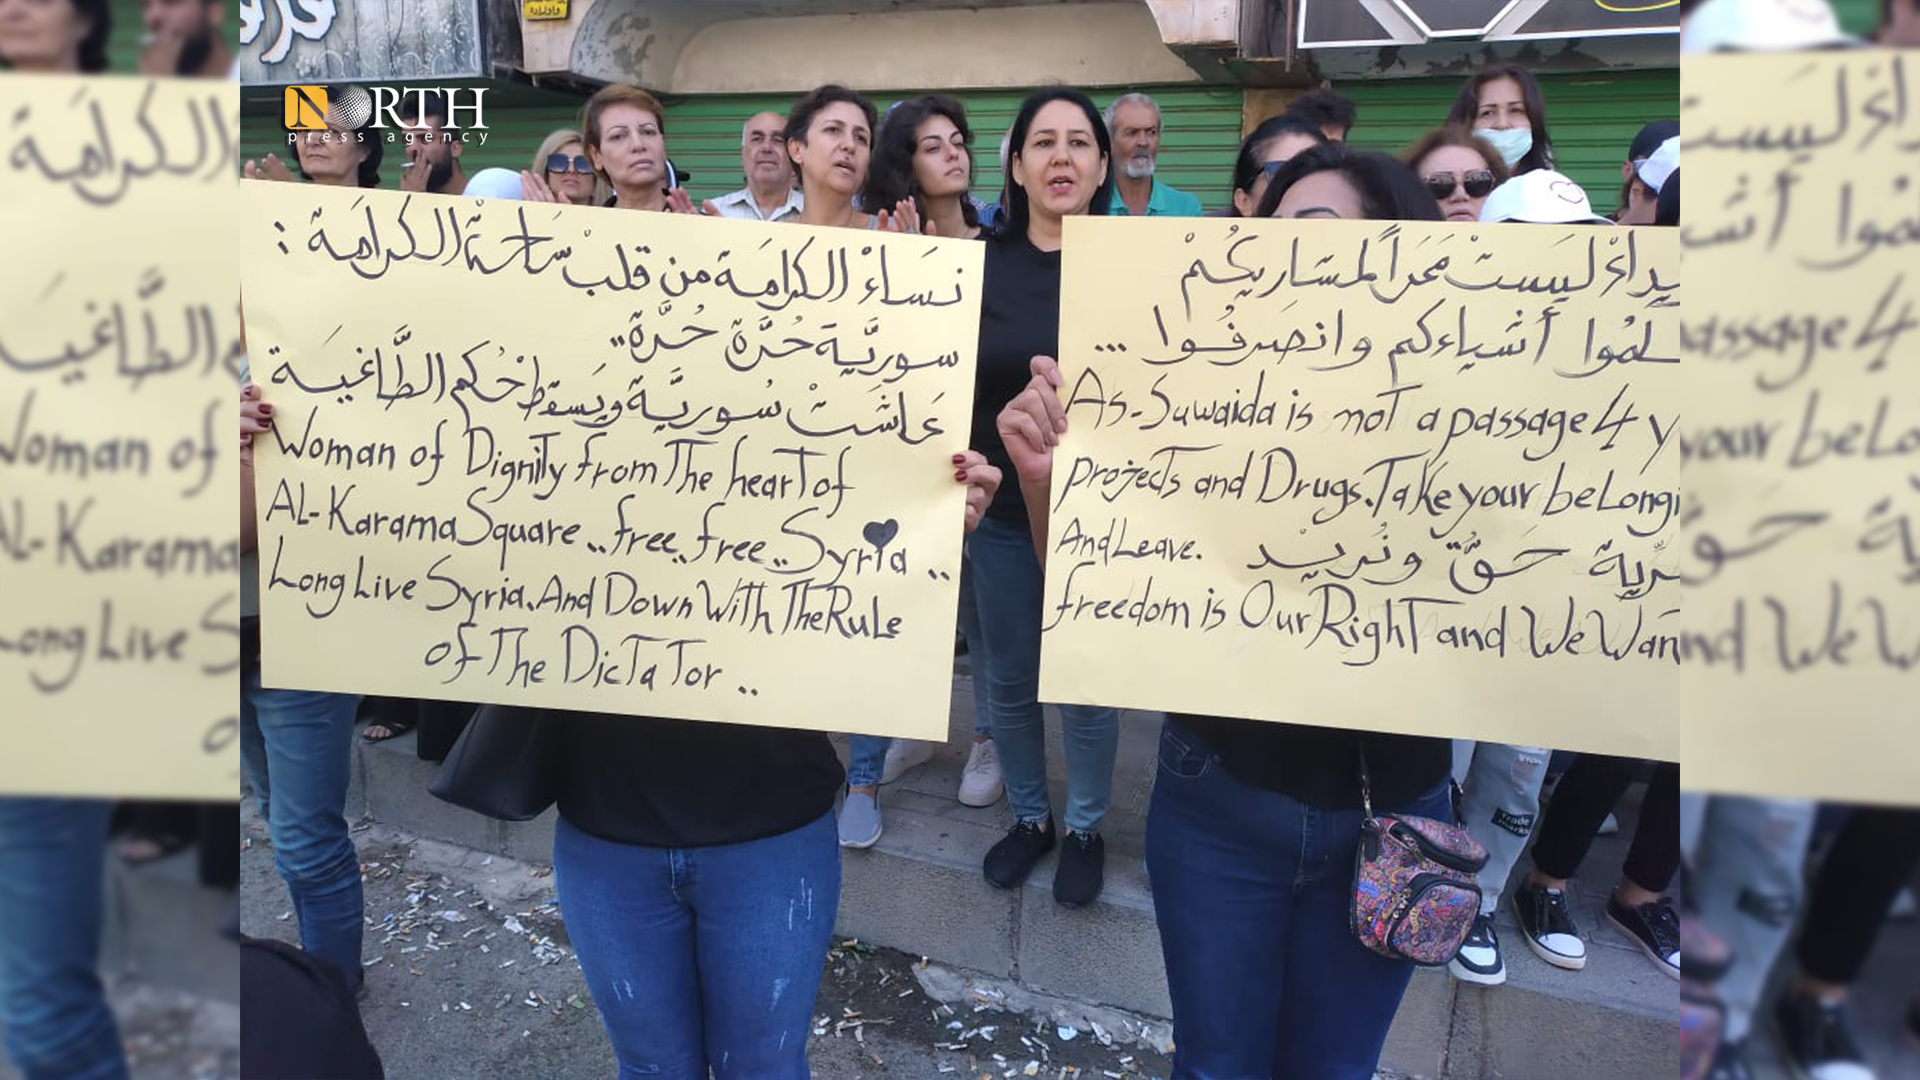 NORTH
press agency
نسَاءْ الكرامَة من قلبْ سَاحَة الكرامَة :
سوريَّة حُرَّة حُرَّة..
عَاشَتْ سُوريَّة ويَسقط حُكم الطَّاغيَة
Woman of Dignity from The hearT of
AL-Karama Square .. free.. free.. Syria ..
Long Live Syria. And Down WiTh The RuLe
of The DicTaTor ..
ليسَتْ مَمَراً لمشاريعكُمْ
أشياءكم وانصَرفُوا ...
As-Suwaida is not a passage 4 y
projecTs and Drugs. Take your beLongi
And Leave.
حَقٌّ ونُريْد
freedom is Our RighT and We Wan
Trade
mark